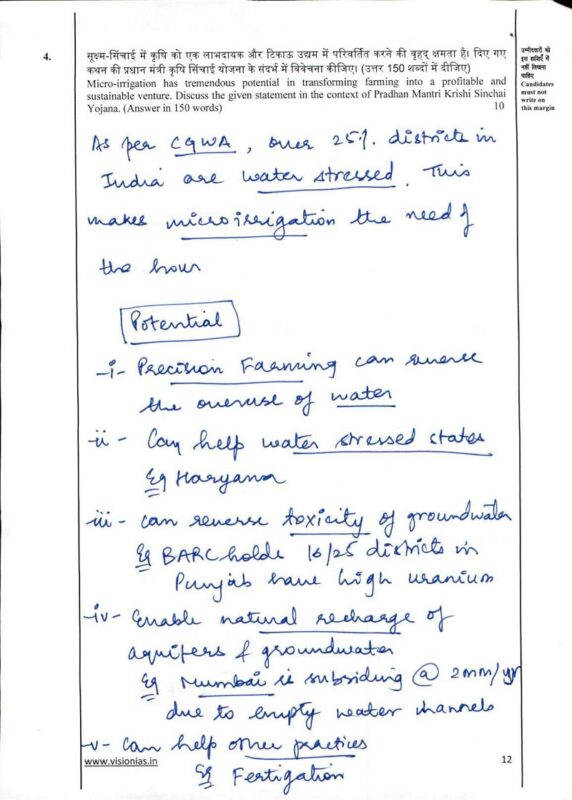 4. सूक्ष्म-सिंचाई में कृषि को एक लाभदायक और टिकाऊ उद्यम में परिवर्तित करने की वृहद् क्षमता है। दिए गए
कथन की प्रधान मंत्री कृषि सिंचाई योजना के संदर्भ में विवेचना कीजिए। (उत्तर 150 शब्दों में दीजिए)
Micro-irrigation has tremendous potential in transforming farming into a profitable and
sustainable venture. Discuss the given statement in the context of Pradhan Mantri Krishi Sinchai
Yojana. (Answer in 150 words) 10
उम्मीदवारों को
इस हाशिये में
नहीं लिखना
चाहिए
Candidates
must not
write on
this margin
As per CGWA, over 25% districts in
India are water stressed. This
makes microirrigation the need of
the hour
Potential
i- Precision Farming can reverse
the overuse of water
ii - Can help water stressed states
Eg Haryana
iii - can reverse toxicity of groundwater
Eg BARC holds 16/25 districts in
Punjab have high uranium
iv- Enable natural recharge of
aquifers & groundwater
Eg Mumbai is subsiding @ 2mm/yr
due to empty water channels
v - can help other practices
Eg Fertigation
www.visionias.in
12